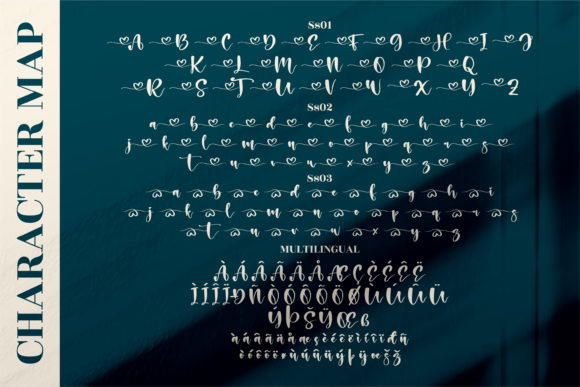 CHARACTER MAP
Ss01
A B C D E F G H I J
K L M N O P Q
R S T U V W X Y Z
Ss02
a b c d e f g h i
j k l m n o p q r s
t u v w x y z
Ss03
a b c d e f g h i
j k l m n o p q r s
t u v w x y z
MULTILINGUAL
ÀÁÂÃÄÅÆÇÈÉÊË
ÌÍÎÏÐÑÒÓÔÕÖØÙÚÛÜ
ÝÞŠŸŒß